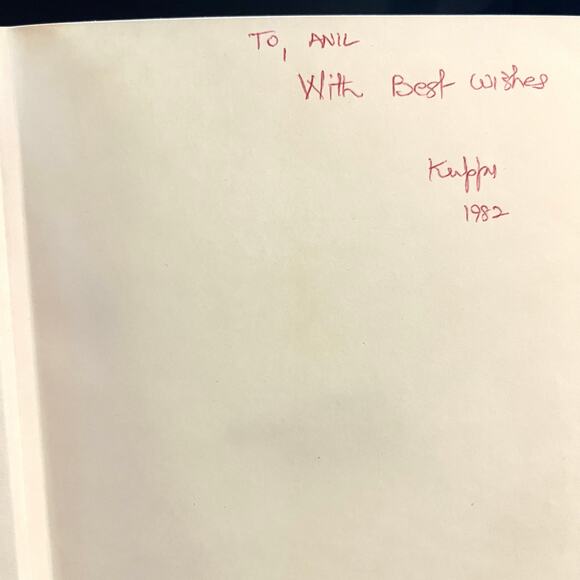 To, ANIL
With Best Wishes
Kuppu
1982